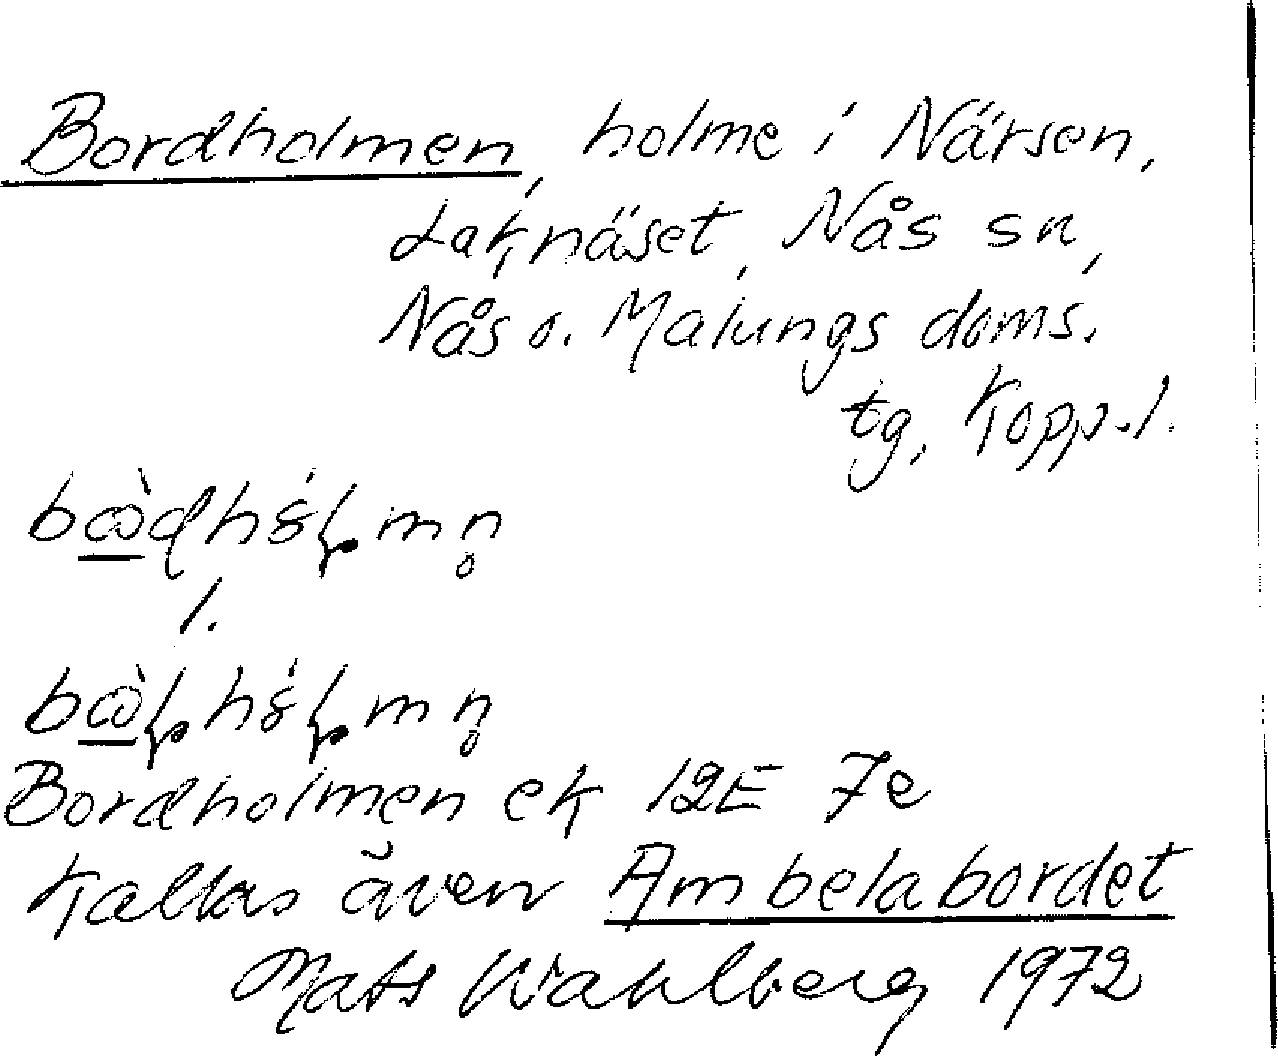 Bordholmen, holme i Närsen,
Laknäset, Nås sn,
Nås o. Malungs doms.
tg, Kopp. l.
l.
Bordholmen ek 12E 7e
Kallas även Ambelabordet
Mats Wahlberg 1972